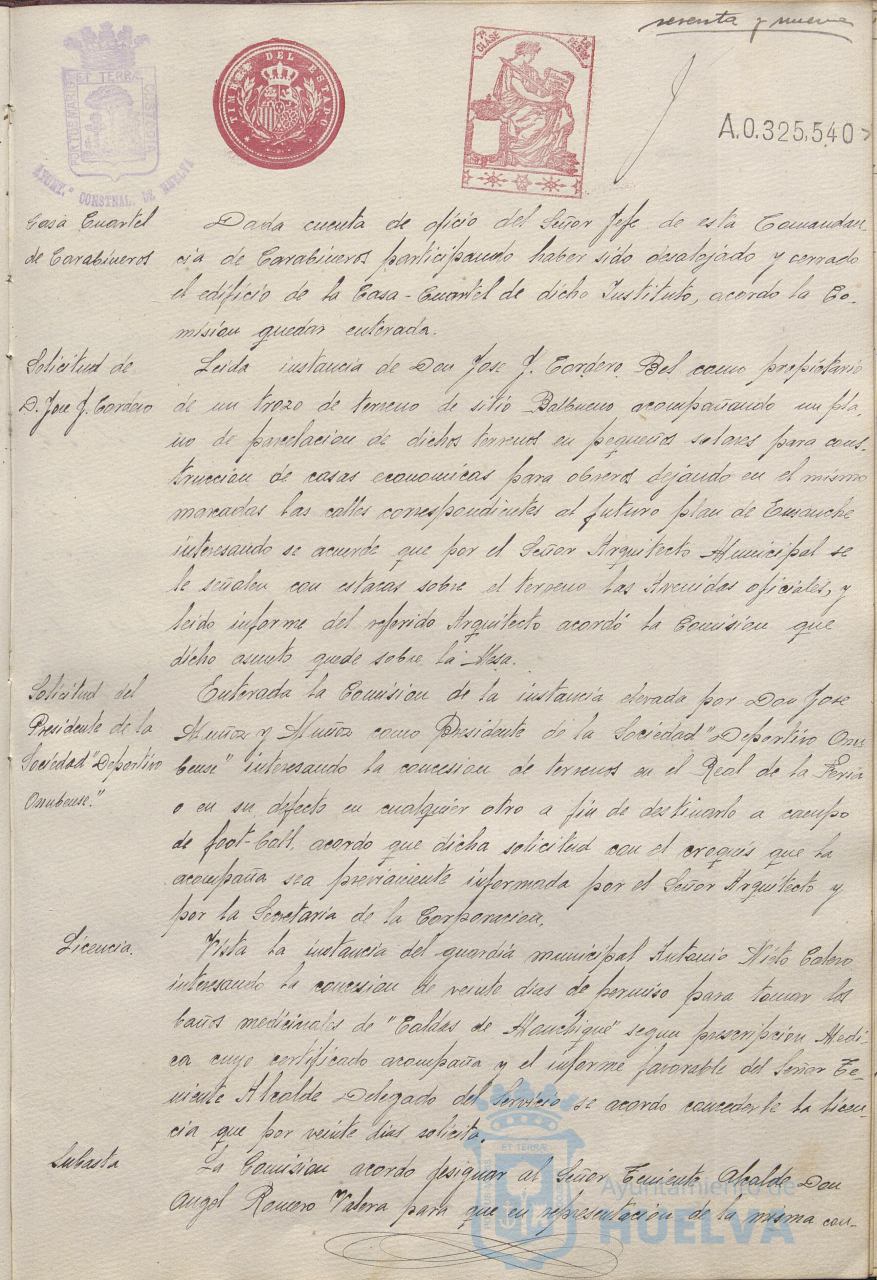 sesenta y nueve
PORTUS MARIS ET TERRAE CUSTODIA
AYUNT.º CONSTNAL. DE HUELVA
TIMBRE DEL ESTADO
7ª CLASE
A.0.325,540
Casa Cuartel
de Carabineros
Dada cuenta de oficio del Señor Jefe de esta Comandan-
cia de Carabineros participando haber sido desalojado y cerrado
el edificio de la Casa-Cuartel de dicho Instituto, acordo la Co-
mision quedar enterada.
Solicitud de
D. Jose J. Cordero
Leida instancia de Don Jose J. Cordero Bel como propietario
de un trozo de terreno de sitio Balbueno acompañando un pla-
no de parcelacion de dichos terrenos en pequeños solares para cons-
truccion de casas economicas para obreros dejando en el mismo
marcadas las calles correspondientes al futuro plan de Ensanche
interesando se acuerde que por el Señor Arquitecto Municipal se
le señalen con estacas sobre el terreno las Avenidas oficiales, y
leido informe del referido Arquitecto acordó la Comision que
dicho asunto quede sobre la Mesa.
Solicitud del
Presidente de la
Sociedad "Deportivo
Onubense."
Enterada la Comision de la instancia elevada por Don Jose
Muñoz y Muñoz como Presidente de la Sociedad "Deportivo Onu-
bense" interesando la concesion de terrenos en el Real de la Feria
o en su defecto en cualquier otro a fin de destinarlo a campo
de foot-ball, acordo que dicha solicitud con el croquis que la
acompaña sea previamente informada por el Señor Arquitecto y
por la Secretaria de la Corporacion.
Licencia.
Vista la instancia del guardia municipal Antonio Nieto Calero
interesando la concesion de veinte dias de permiso para tomar los
baños medicinales de "Caldas de Monchique" segun prescripcion Medi-
ca cuyo certificado acompaña y el informe favorable del Señor Te-
niente Alcalde Delegado del Servicio se acordo concederle la licen-
cia que por veinte dias solicita.
Subasta
La Comision acordo designar al Señor Teniente Alcalde Don
Angel Romero Valera para que en representacion de la misma con-
Ayuntamiento de
HUELVA